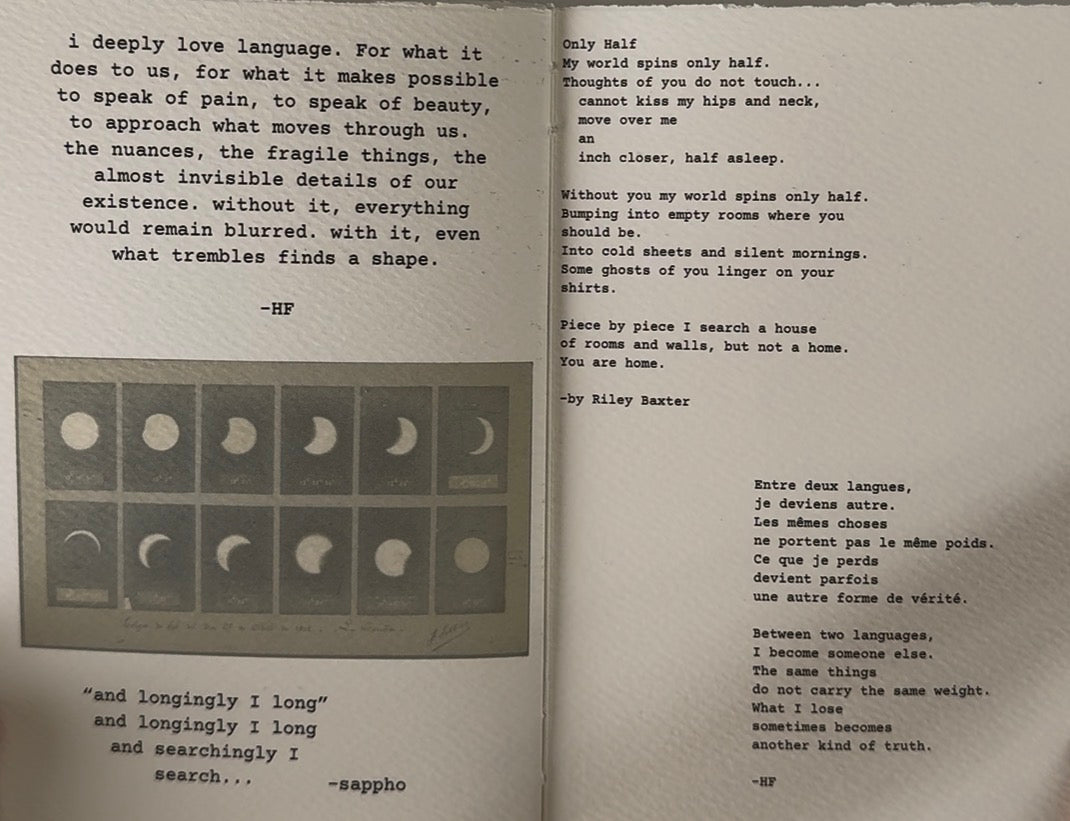 i deeply love language. For what it
does to us, for what it makes possible
to speak of pain, to speak of beauty,
to approach what moves through us.
the nuances, the fragile things, the
almost invisible details of our
existence. without it, everything
would remain blurred. with it, even
what trembles finds a shape.
-HF
"and longingly I long"
and longingly I long
and searchingly I
search...
-sappho
Only Half
My world spins only half.
Thoughts of you do not touch...
cannot kiss my hips and neck,
move over me
an
inch closer, half asleep.
Without you my world spins only half.
Bumping into empty rooms where you
should be.
Into cold sheets and silent mornings.
Some ghosts of you linger on your
shirts.
Piece by piece I search a house
of rooms and walls, but not a home.
You are home.
-by Riley Baxter
Entre deux langues,
je deviens autre.
Les mêmes choses
ne portent pas le même poids.
Ce que je perds
devient parfois
une autre forme de vérité.
Between two languages,
I become someone else.
The same things
do not carry the same weight.
What I lose
sometimes becomes
another kind of truth.
-HF